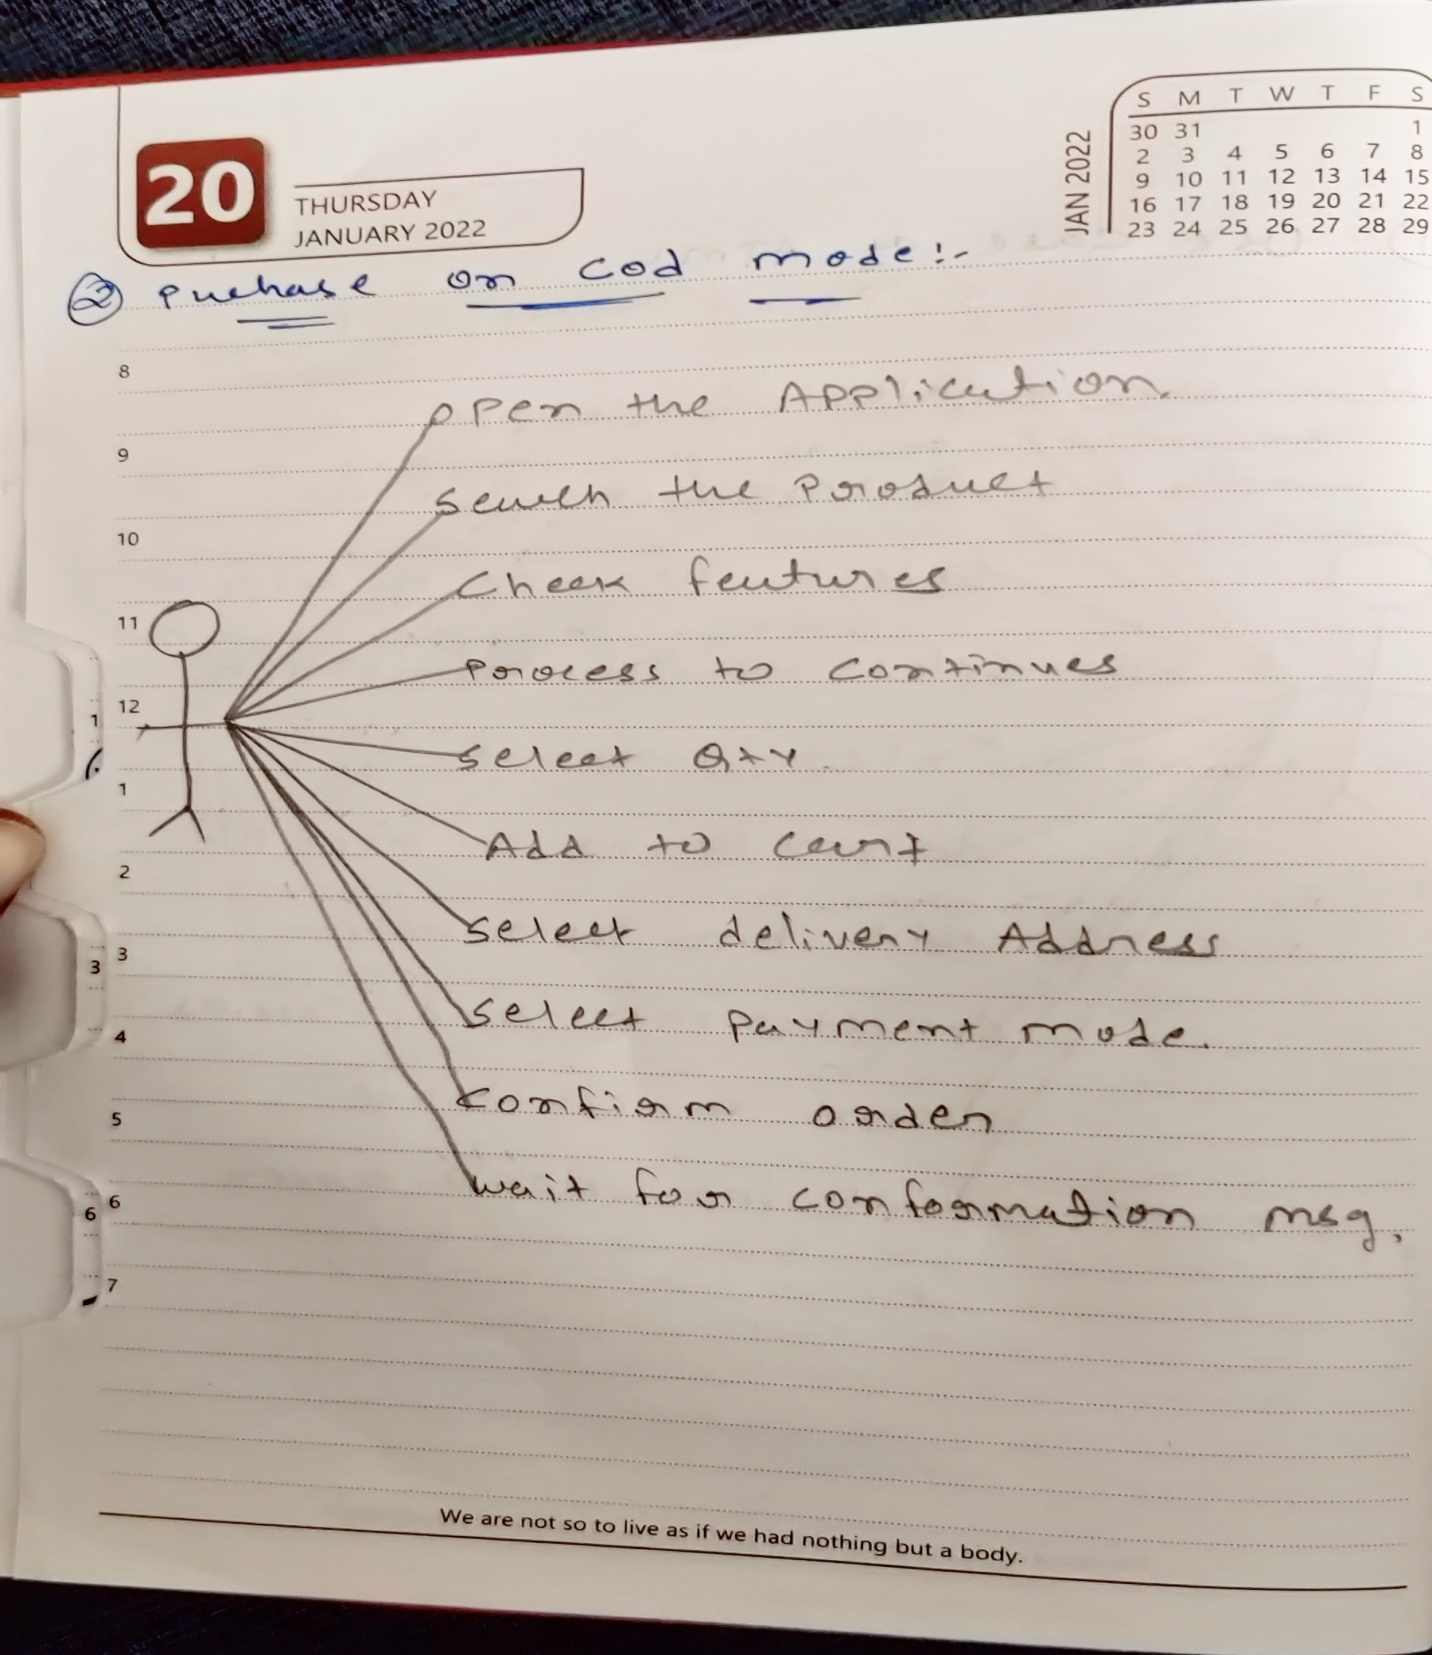 20
THURSDAY
JANUARY 2022
JAN 2022
S M T W T F S
30 31 1
2 3 4 5 6 7 8
9 10 11 12 13 14 15
16 17 18 19 20 21 22
23 24 25 26 27 28 29
② Puchase on Cod mode:-
8
open the Application.
9
Search the Product
10
Check features
11
Process to continues
12
1
Select Qty.
1
Add to Cart
2
Select delivery Address
3
3
Select payment mode.
4
Confirm order
5
wait for conformation msg.
6
6
7
We are not so to live as if we had nothing but a body.